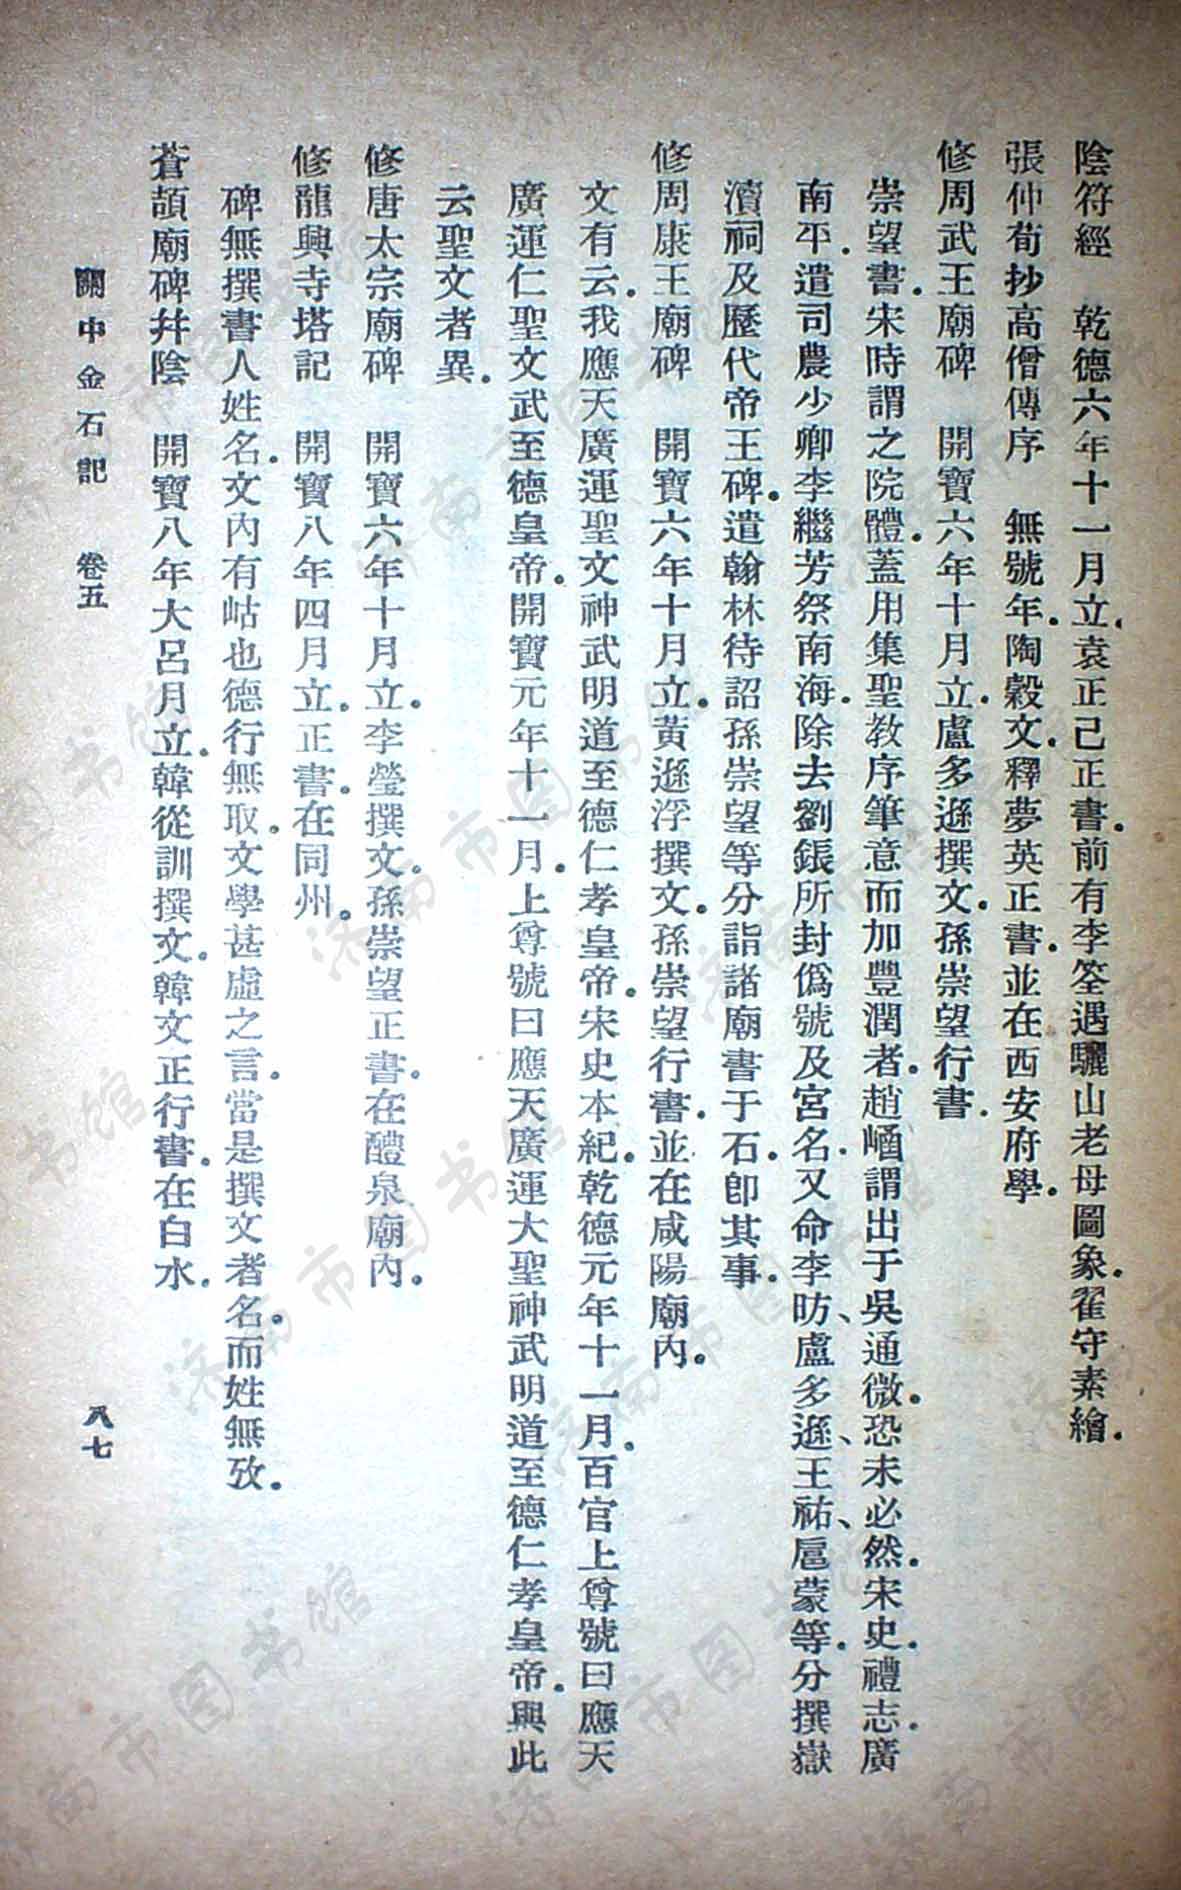 陰符經　乾德六年十一月立。袁正己正書。前有李筌遇驪山老母圖象。翟守素繪。
張仲荀抄高僧傳序　無號年。陶穀文。釋夢英正書。並在西安府學。
修周武王廟碑　開寶六年十月立。盧多遜撰文。孫崇望行書。
崇望書。宋時謂之院體。蓋用集聖教序筆意而加豐潤者。趙崡謂出于吳通微。恐未必然。宋史禮志。廣
南平。遣司農少卿李繼芳祭南海。除去劉鋹所封僞號及宮名。又命李昉、盧多遜、王祐、扈蒙等。分撰嶽
瀆祠及歷代帝王碑。遣翰林待詔孫崇望等分詣諸廟書于石。卽其事。
修周康王廟碑　開寶六年十月立。黃遜浮撰文。孫崇望行書。並在咸陽廟內。
文有云。我應天廣運聖文神武明道至德仁孝皇帝。宋史本紀。乾德元年十一月。百官上尊號曰應天
廣運仁聖文武至德皇帝。開寶元年十一月。上尊號曰應天廣運大聖神武明道至德仁孝皇帝。與此
云聖文者異。
修唐太宗廟碑　開寶六年十月立。李瑩撰文。孫崇望正書。在醴泉廟內。
修龍興寺塔記　開寶八年四月立。正書。在同州。
碑無撰書人姓名。文內有岵也德行無取。文學甚虛之言。當是撰文者名。而姓無攷。
蒼頡廟碑幷陰　開寶八年大呂月立。韓從訓撰文。韓文正行書。在白水。
關中金石記　卷五　八七
济南市图书馆